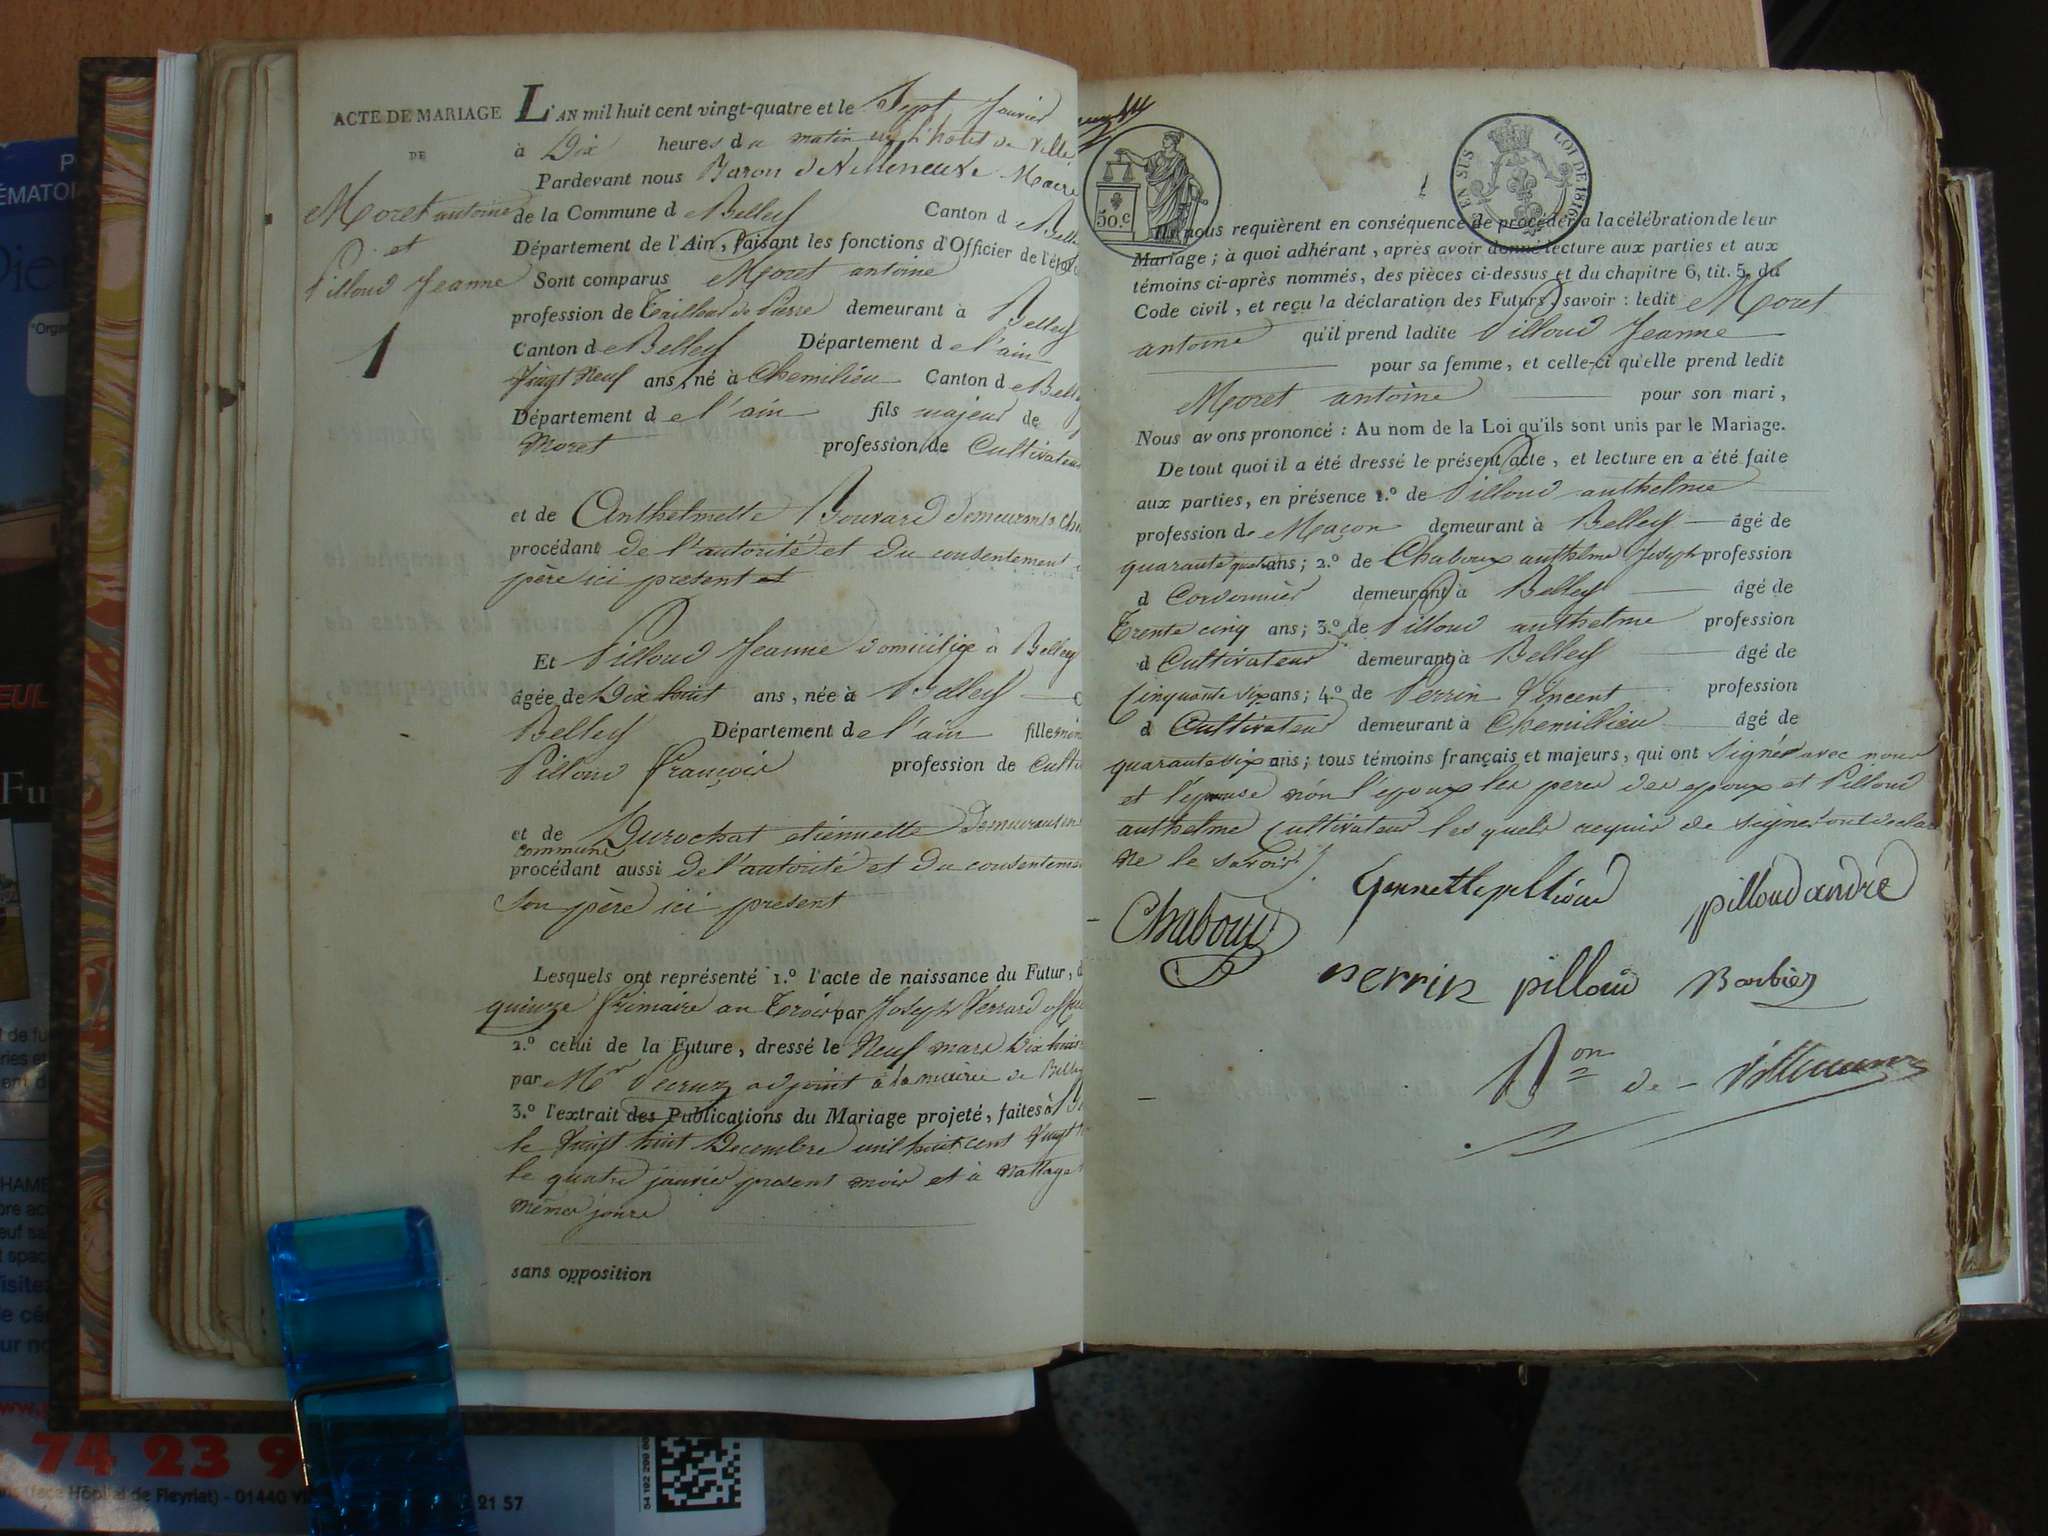 ACTE DE MARIAGE
DE
Moret antoine
et
Pilloud Jeanne
1
L'AN mil huit cent vingt-quatre et le Sept Janvier
à Dix heures du matin en l'hotel de Ville
Pardevant nous Baron de Villeneuve Maire
de la Commune de Belley Canton de Belle
Département de l'Ain, faisant les fonctions d'Officier de l'état
Sont comparus Moret antoine
profession de Tailleur de Pierre demeurant à Belley
Canton de Belley Département de l'ain
Vingt Neuf ans, né à Chemilieu Canton de Bell
Département de l'ain fils majeur de
Moret profession de Cultivateur
et de Anthelmette Bouvard demeurants Che
procédant de l'autorité et du consentement
père ici present et
Et Pilloud Jeanne domiciliée à Belley
âgée de Dix huit ans, née à Belley
Belley Département de l'ain fille min
Pilloud François profession de Culti
et de Durochat etiennette Demeurants en
commune
procédant aussi de l'autorité et du consenteme
Son père ici present
Lesquels ont représenté 1.º l'acte de naissance du Futur, d
quinze frimaire an Trois par Joseph Verrard offi
2.º celui de la Future, dressé le Neuf mars Dix huit
par Mr Peruz adjoint à la mairie de Belley
3.º l'extrait des Publications du Mariage projeté, faites à B
le Vingt huit Decembre mil huit cent Vingt
le quatre janvier present mois et à Nattage
mêmes jours
sans opposition
50.C
EN SUS
LOI DE 1816
Ils nous requièrent en conséquence de procéder a la célébration de leur
Mariage; à quoi adhérant, après avoir donné lecture aux parties et aux
témoins ci-après nommés, des pièces ci-dessus et du chapitre 6, tit. 5, du
Code civil, et reçu la déclaration des Futurs, savoir : ledit Moret
antoine qu'il prend ladite Pilloud Jeanne
pour sa femme, et celle-ci qu'elle prend ledit
Moret antoine pour son mari,
Nous avons prononcé : Au nom de la Loi qu'ils sont unis par le Mariage.
De tout quoi il a été dressé le présent acte, et lecture en a été faite
aux parties, en présence 1.º de Pilloud anthelme
profession de Maçon demeurant à Belley âgé de
quarante quatre ans; 2.º de Chaboux anthelme Joseph profession
d Cordonnier demeurant à Belley âgé de
Trente cinq ans; 3.º de Pilloud anthelme profession
d Cultivateur demeurant à Belley âgé de
Cinquante six ans; 4.º de Perrin Vincent profession
d Cultivateur demeurant à Chemillieu âgé de
quarante six ans; tous témoins français et majeurs, qui ont signés avec nous
et l'épouse non l'epoux les peres des epoux et Pilloud
anthelme Cultivateur lesquels requis de signer ont declar
ne le savoir
Chaboux
pilloud andré
perrin pilloud Barbier
Bon de Villeneuve
74 23 9
(face Hôpital de Fleyriat) - 01440
21 57